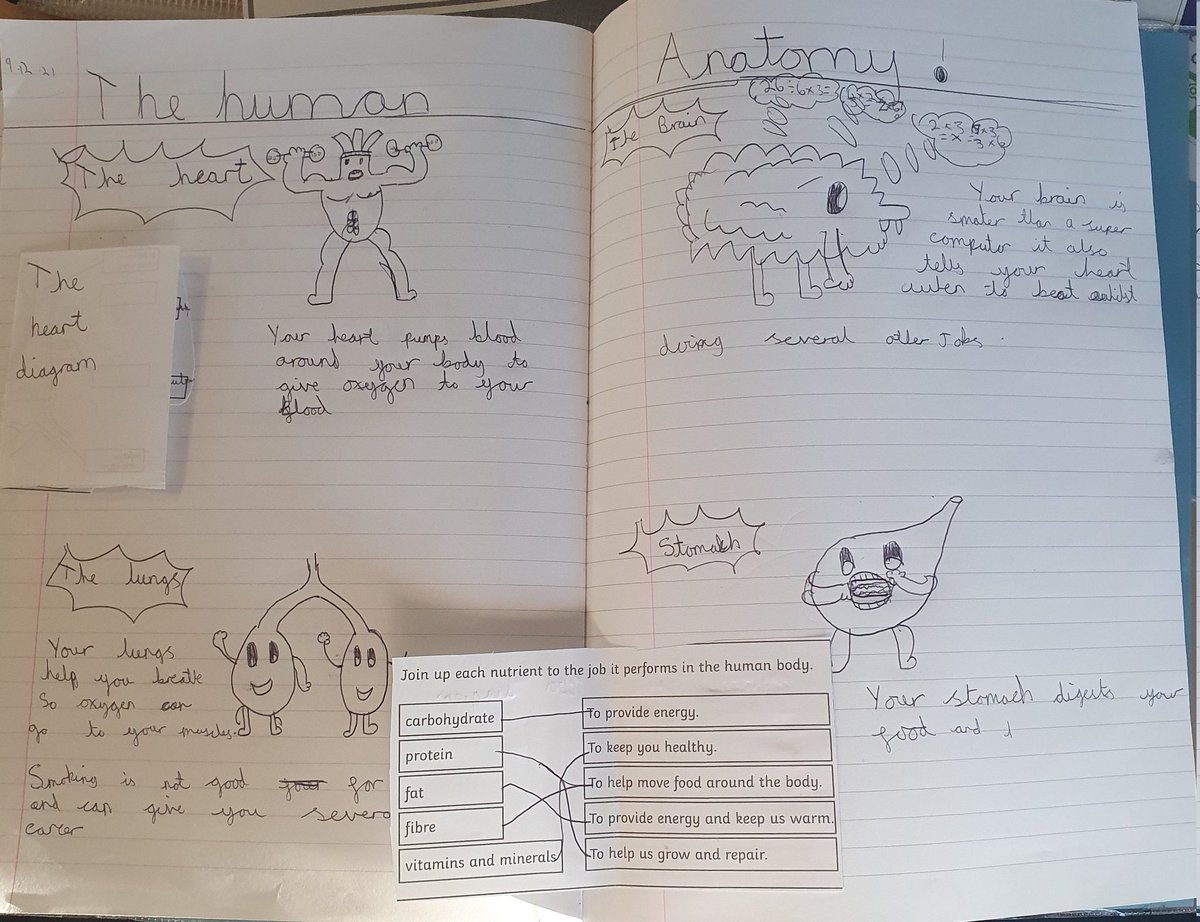 9.12.21
The human
The heart
The
heart
diagram
Your heart pumps blood
around your body to
give oxygen to your
blood
The lungs
Your lungs
help you breath
So oxygen can
go to your muscles.
Smoking is not good for
and can give you severo
Anatomy!
26÷6×3=
The Brain
2×3
Your brain is
smater than a super
computor it also
tells your heart
to beat
doing several other Jobs.
Stomach
Your stomach digests your
food and
Join up each nutrient to the job it performs in the human body.
carbohydrate
To provide energy.
protein
To keep you healthy.
fat
To help move food around the body.
fibre
To provide energy and keep us warm.
vitamins and minerals
To help us grow and repair.